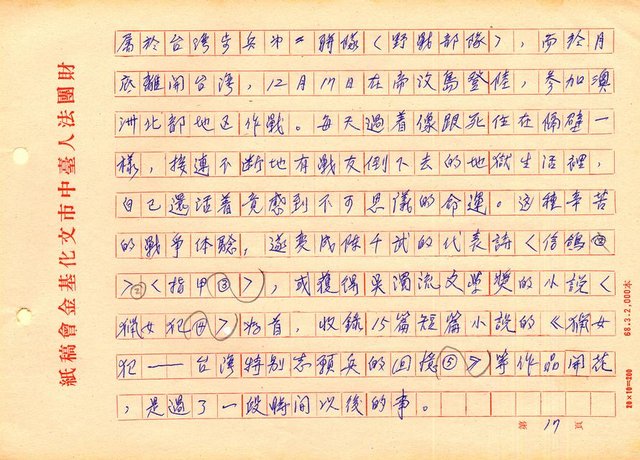 屬於台灣步兵第二聯隊〈野戰部隊〉，而於月
底離開台灣，12月17日在帝汶島登陸，參加澳
洲北部地区作戰。每天過着像跟死住在隔壁一
樣，接連不斷地有戰友倒下去的地獄生活裡，
自己還活着竟感到不可思議的命運。这種辛苦
的戰爭体驗，逐変成陳千武的代表詩〈信鴿
〉②〈指甲③〉，或獲得吳濁流文學獎的小說〈
獵女犯④〉為首，收錄15篇短篇小說的《獵女
犯——台灣特別志願兵的回憶⑤》等作品開花
，是過了一段時間以後的事。
財團法人臺中市文化基金會稿紙
68.3.2,000本
20×10=200
第 17 頁